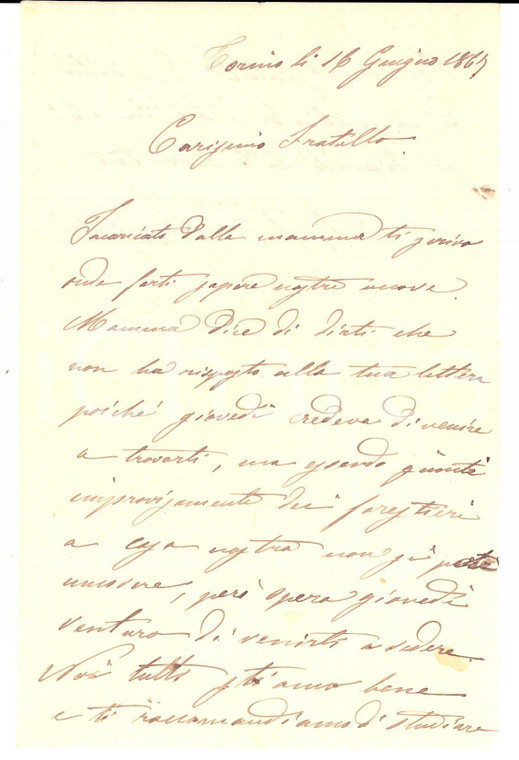 Torino li 16 Giugno 1865
Carissimo Fratello
Incaricato dalla mamma ti scrivo
onde farti sapere nostre nuove.
Mamma dice di dirti che
non ha risposto alla tua lettera
poiché giovedì credeva di venire
a trovarti, ma essendo giunti
improvisamente dei forestieri
a casa nostra non si potè
muovere, però spera giovedì
venturo di venirti a vedere.
Noi tutti stiamo bene
e ti raccomandiamo di studiare